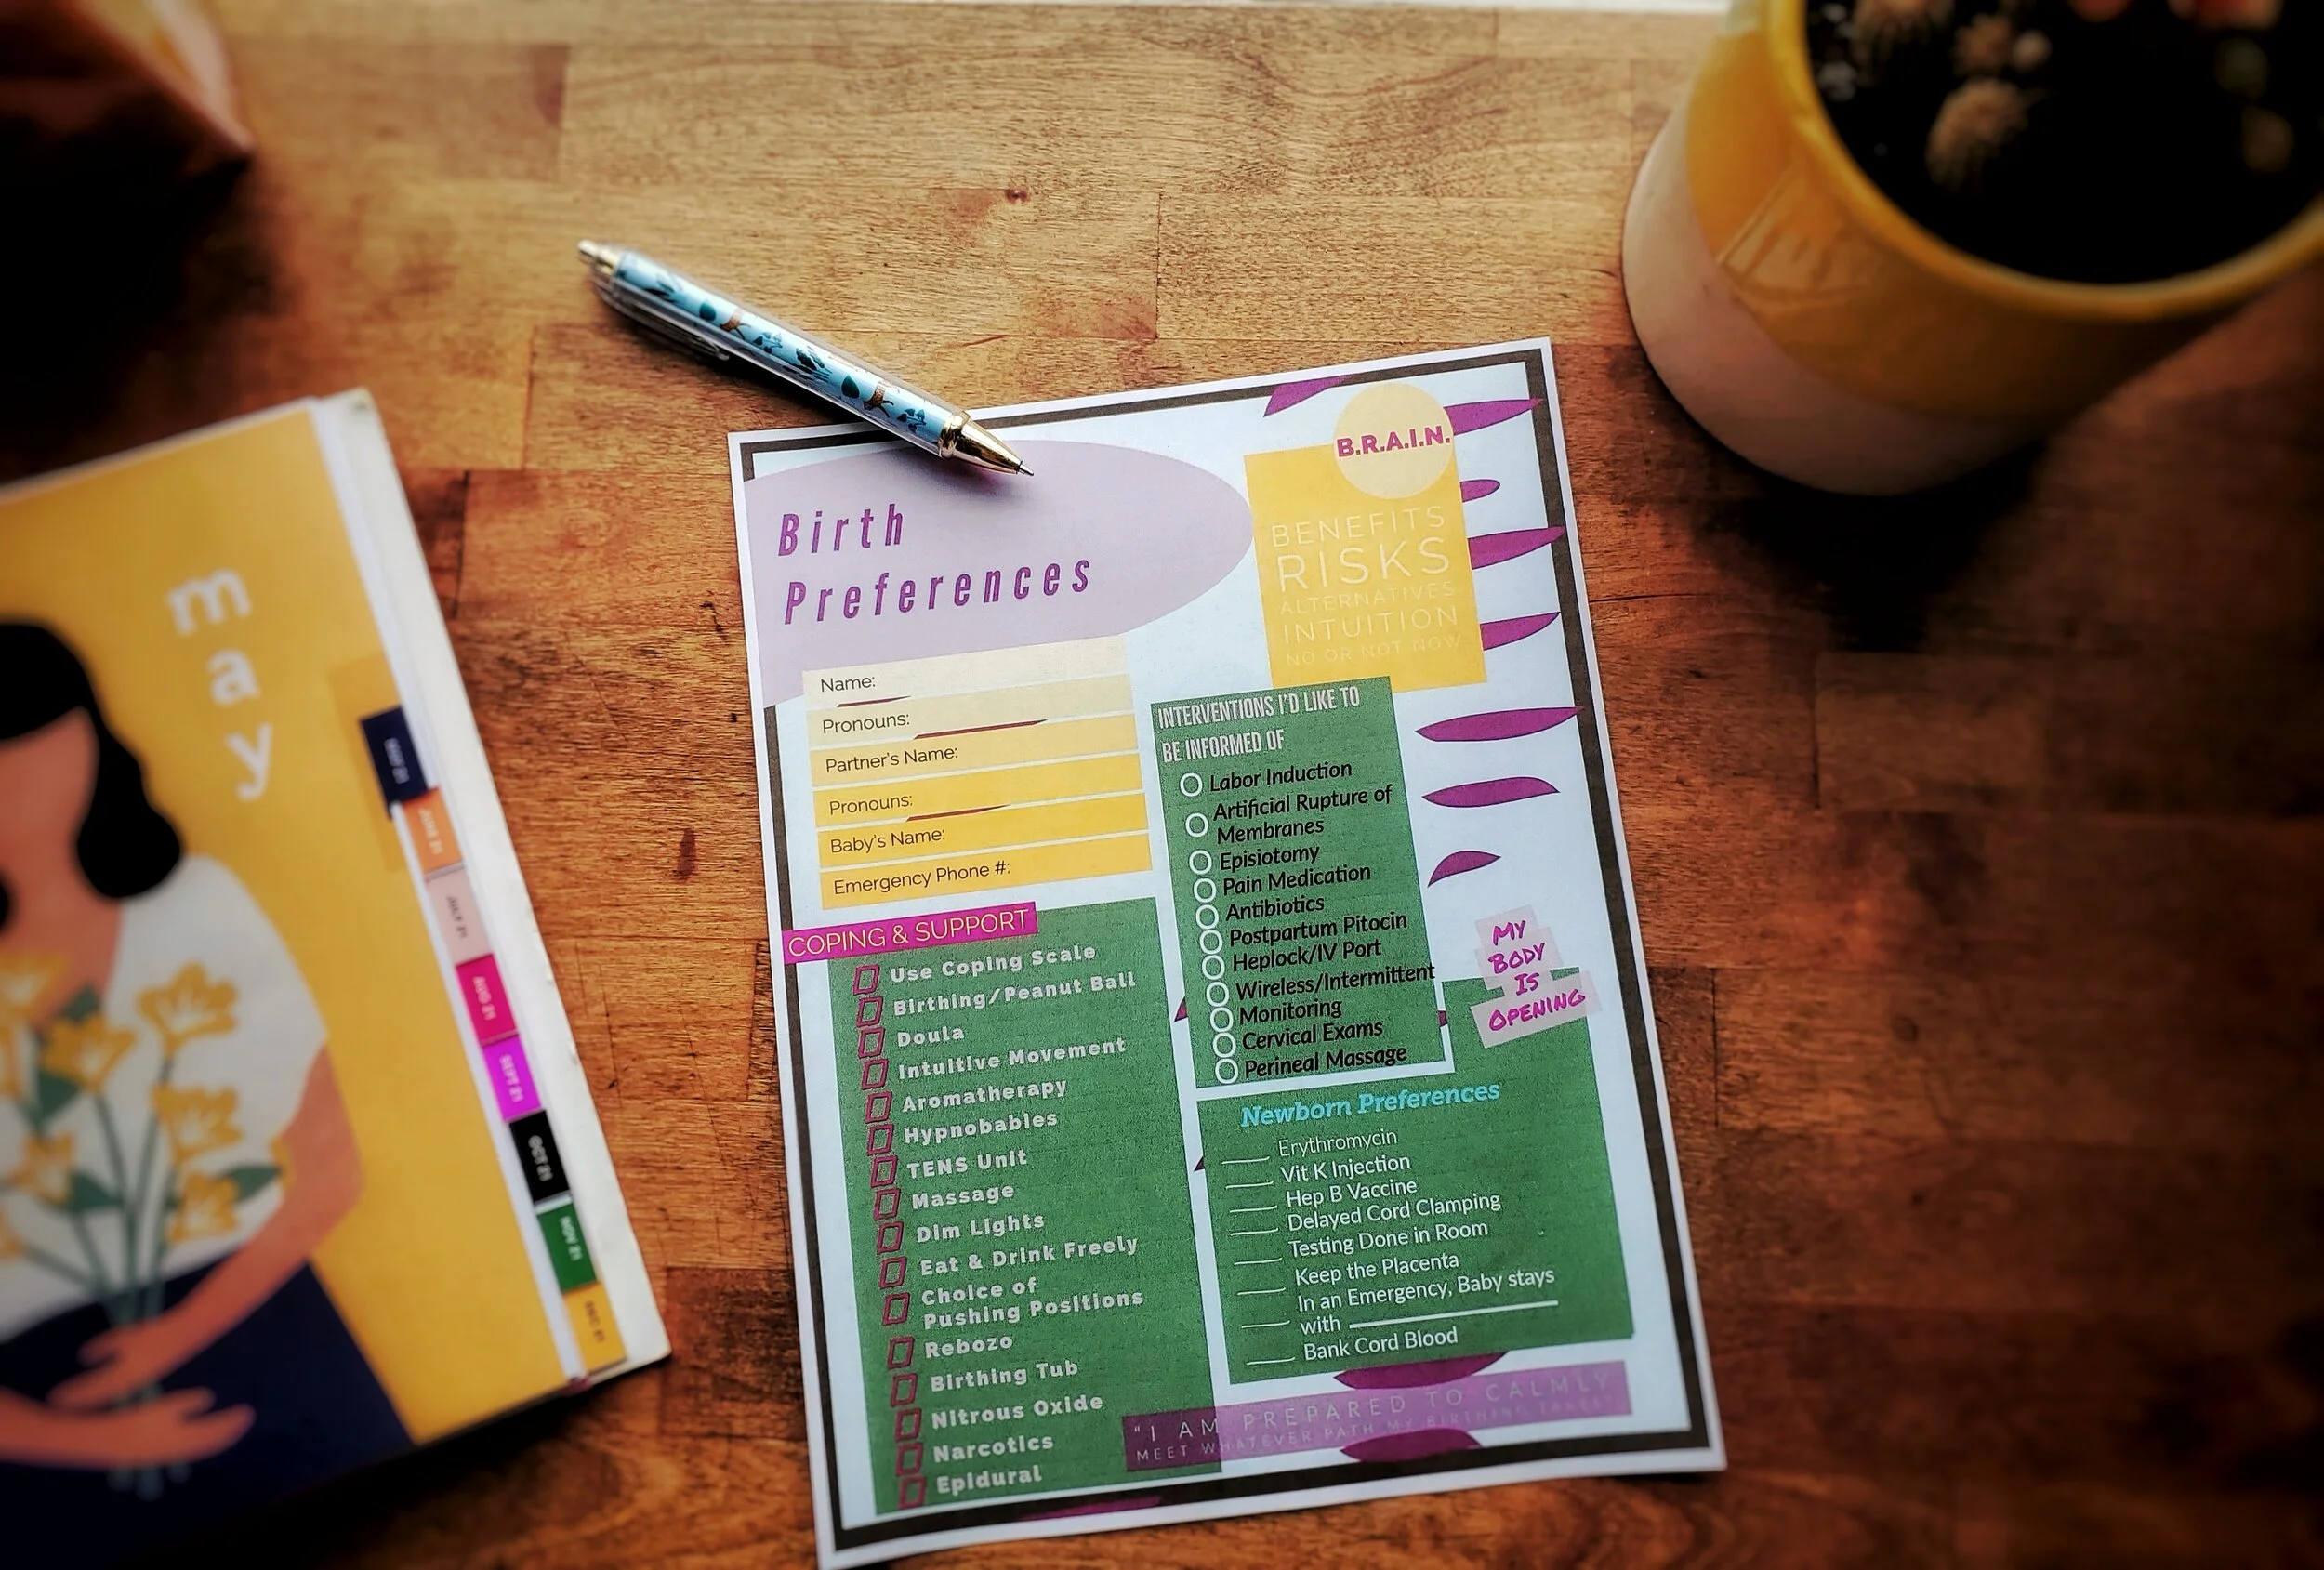 m
a
y
MAY 21
JULY 21
AUG 21
SEPT 21
OCT 21
NOV 21
DEC 21
Birth
Preferences
B.R.A.I.N.
BENEFITS
RISKS
ALTERNATIVES
INTUITION
NO OR NOT NOW
Name:
Pronouns:
Partner's Name:
Pronouns:
Baby's Name:
Emergency Phone #:
COPING & SUPPORT
Use Coping Scale
Birthing/Peanut Ball
Doula
Intuitive Movement
Aromatherapy
Hypnobables
TENS Unit
Massage
Dim Lights
Eat & Drink Freely
Choice of
Pushing Positions
Rebozo
Birthing Tub
Nitrous Oxide
Narcotics
Epidural
INTERVENTIONS I'D LIKE TO
BE INFORMED OF
Labor Induction
Artificial Rupture of
Membranes
Episiotomy
Pain Medication
Antibiotics
Postpartum Pitocin
Heplock/IV Port
Wireless/Intermittent
Monitoring
Cervical Exams
Perineal Massage
MY
BODY
IS
OPENING
Newborn Preferences
Erythromycin
Vit K Injection
Hep B Vaccine
Delayed Cord Clamping
Testing Done in Room
Keep the Placenta
In an Emergency, Baby stays
with
Bank Cord Blood
"I AM PREPARED TO CALMLY
MEET WHATEVER PATH MY BIRTHING TAKES"